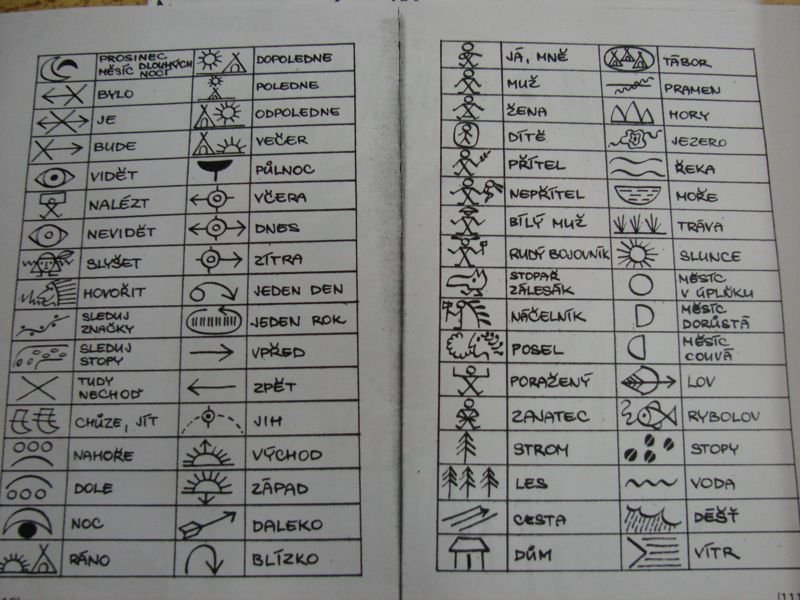 PROSINEC
MĚSÍC DLOUHÝCH
NOCÍ
DOPOLEDNE
BYLO
POLEDNE
JE
ODPOLEDNE
BUDE
VEČER
VIDĚT
PŮLNOC
NALÉZT
VČERA
NEVIDĚT
DNES
SLYŠET
ZÍTRA
HOVOŘIT
JEDEN DEN
SLEDUJ
ZNAČKY
JEDEN ROK
SLEDUJ
STOPY
VPŘED
TUDY
NECHOĎ
ZPĚT
CHŮZE, JÍT
JIH
NAHOŘE
VÝCHOD
DOLE
ZÁPAD
NOC
DALEKO
RÁNO
BLÍZKO
JÁ, MNĚ
TÁBOR
MUŽ
PRAMEN
ŽENA
HORY
DÍTĚ
JEZERO
PŘÍTEL
ŘEKA
NEPŘÍTEL
MOŘE
BÍLÝ MUŽ
TRÁVA
RUDÝ BOJOVNÍK
SLUNCE
STOPAŘ
ZÁLESÁK
MĚSÍC
V ÚPLŇKU
NÁČELNÍK
MĚSÍC
DORŮSTÁ
POSEL
MĚSÍC
COUVÁ
PORAŽENÝ
LOV
ZAJATEC
RYBOLOV
STROM
STOPY
LES
VODA
CESTA
DÉŠŤ
DŮM
VÍTR